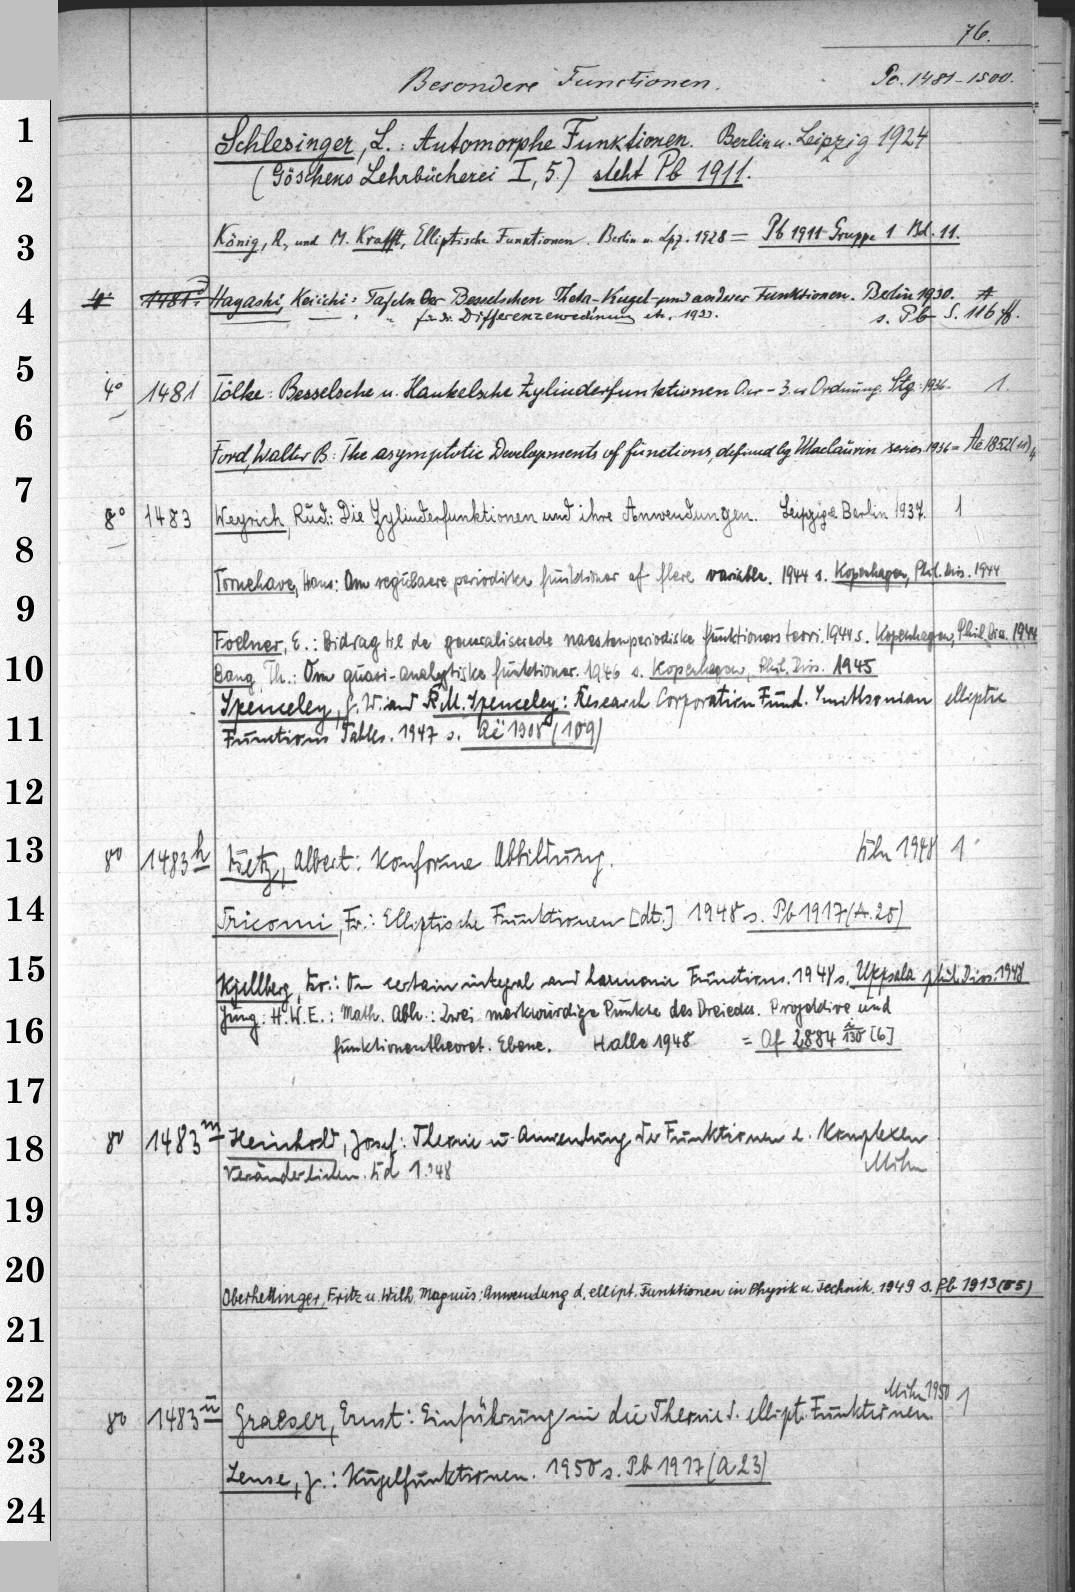 76.
Besondere Functionen. Po. 1481-1500.
1 Schlesinger, L.: Automorphe Funktionen. Berlin u. Leipzig 1924
2 (Göschens Lehrbücherei I, 5.) steht Pb 1911.
3 König, R, und M. Krafft, Elliptische Funktionen. Berlin u. Lpz. 1928 = Pb 1911 Gruppe 1 Bd. 11.
4 4° 1481. Hayashi, Keiichi: Tafeln der Besselschen Theta-Kugel- und anderer Funktionen. Berlin 1930.
für die Differenzenrechnung etc. 1933. s. Pb S. 116 ff.
5 4° 1481 Tölke: Besselsche u. Hankelsche Zylinderfunktionen 0.er - 3.er Ordnung. Stg: 1936. 1.
6 Ford, Walter B: The asymptotic Developments of functions, defined by Maclaurin series 1936 = Ae 1852
7 8° 1483 Weyrich, Rud.: Die Zylinderfunktionen und ihre Anwendungen. Leipzig & Berlin 1937. 1
8 Tornehave, Hans: Om regulaere periodiske funktioner af flere variable. 1944 s. Kopenhagen, Phil. Diss. 1944
9 Foelner, E.: Bidrag til de generaliserede naestenperiodiske funktioners teori. 1944 s. Kopenhagen, Phil. Diss. 1944
10 Bang, Th.: Om quasi-analytiske funktioner. 1946 s. Kopenhagen, Phil. Diss. 1945
Spenceley, G. W. and R. M. Spenceley: Research Corporation Fund. Smithsonian elliptic
11 Functions Tables. 1947 s. Aë 1908 (109)
12
13 8° 1483h Kietz, Albert: Konforme Abbildung. Köln 1948 1
14 Tricomi, Fr.: Elliptische Funktionen [dt.] 1948 s. Pb 1917 (A. 20)
15 Kjellberg, Bo: On certain integral and harmonic Functions. 1948 s. Uppsala phil. Diss. 1948
Jung: H. W. E.: Math. Abh.: Zwei merkwürdige Punkte des Dreiecks. Projektive und
16 funktionentheoret. Ebene. Halle 1948 = Af 2884 [6]
17
18 8° 1483m Heinhold, Josef: Theorie u. Anwendung der Funktionen e. komplexen
Veränderlichen. Bd 1. 48 Mchn
19
20 Oberhettinger, Fritz u. Wilh. Magnus: Anwendung d. ellipt. Funktionen in Physik u. Technik. 1949 s. Pb 1913 (55)
21
22 8° 1483n Graeser, Ernst: Einführung in die Theorie d. ellipt. Funktionen. Mchn 1950 1
23 Lense, J.: Kugelfunktionen. 1950 s. Pb 1917 (A 23)
24